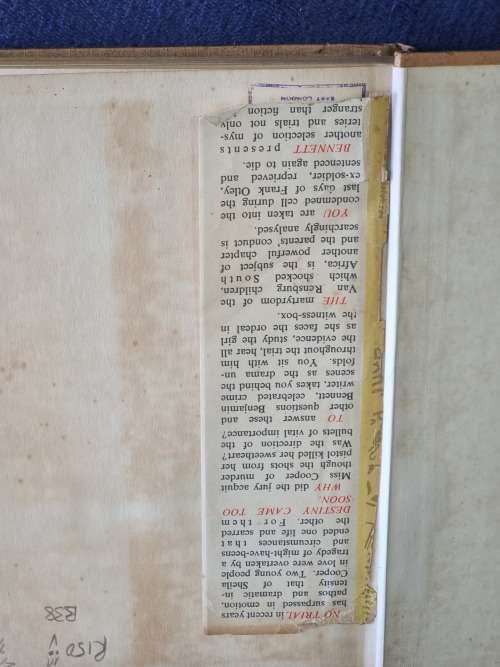 NO TRIAL in recent years
has surpassed in emotion,
pathos and dramatic in-
tensity that of Sheila
Cooper. Two young people
in love were overtaken by a
tragedy of might-have-beens
and circumstances that
ended one life and scarred
the other. For them
DESTINY CAME TOO
SOON.
WHY did the jury acquit
Miss Cooper of murder
though the shots from her
pistol killed her sweetheart?
Was the direction of the
bullets of vital importance?
TO answer these and
other questions Benjamin
Bennett, celebrated crime
writer, takes you behind the
scenes as the drama un-
folds. You sit with him
throughout the trial, hear all
the evidence, study the girl
as she faces the ordeal in
the witness-box.
THE martyrdom of the
Van Rensburg children,
which shocked South
Africa, is the subject of
another powerful chapter
and the parents' conduct is
searchingly analysed.
YOU are taken into the
condemned cell during the
last days of Frank Otley,
ex-soldier, reprieved and
sentenced again to die.
BENNETT presents
another selection of mys-
teries and trials not only
stranger than fiction
EAST LONDON
R150
B38